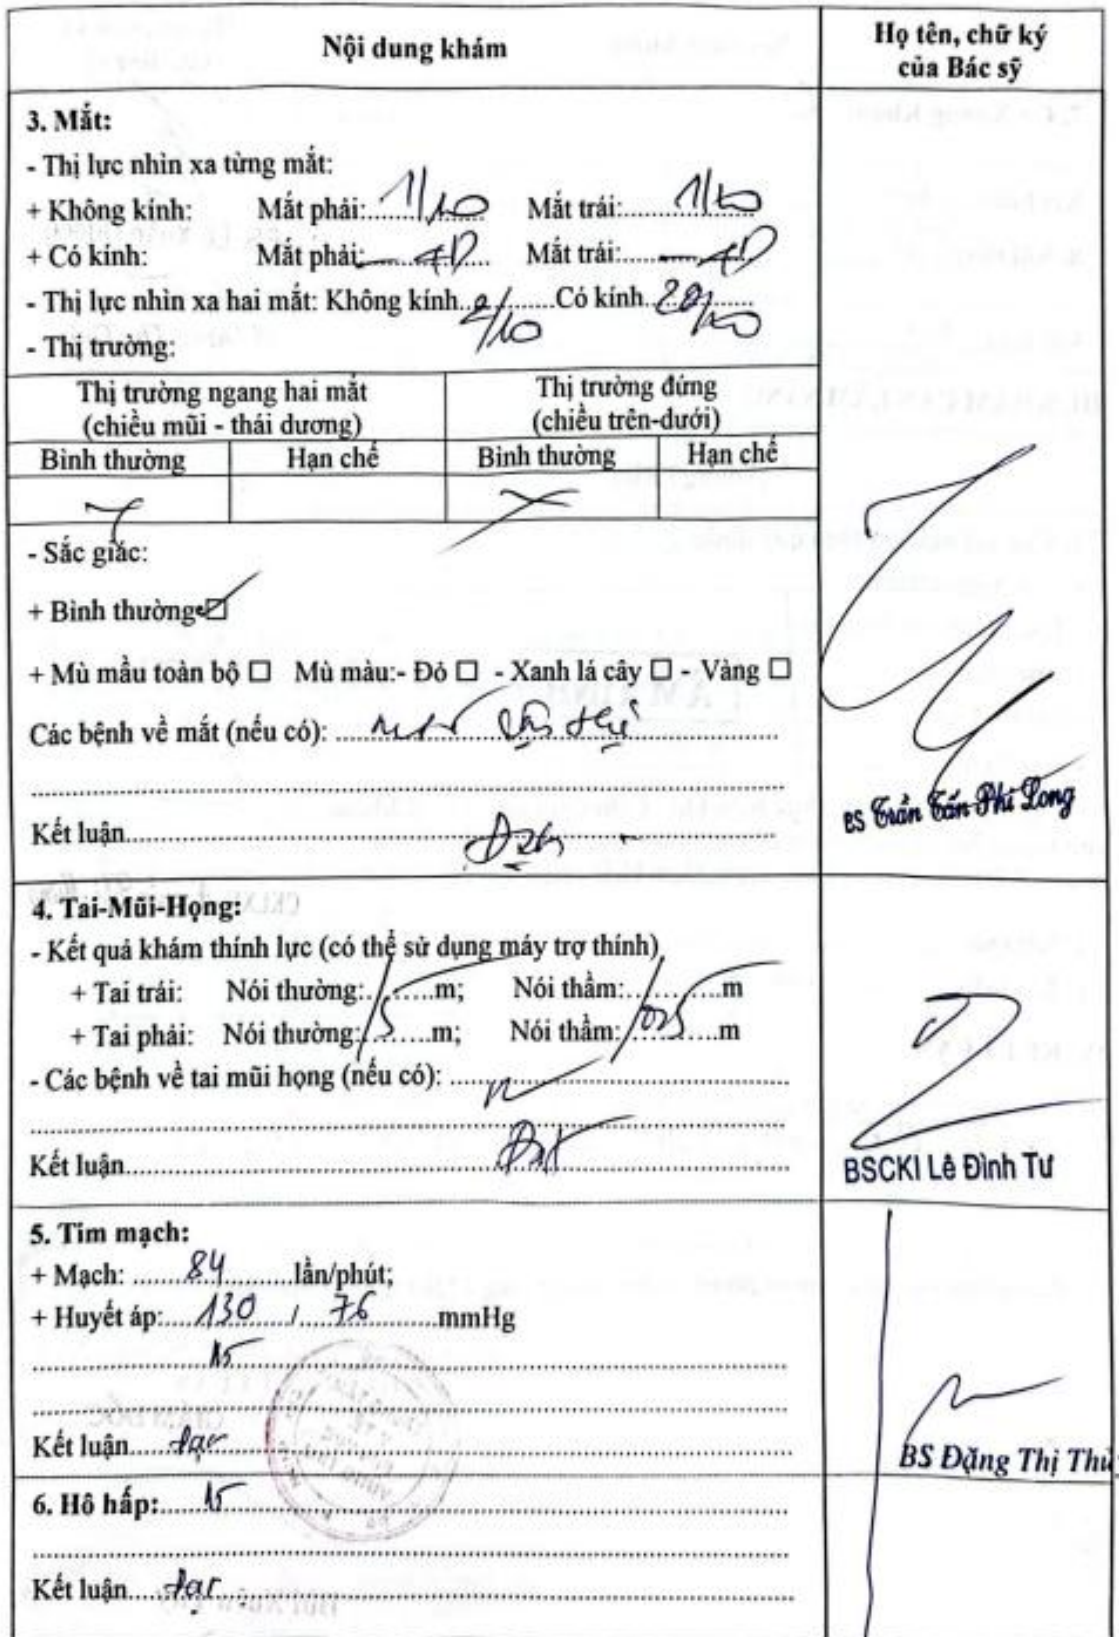 Nội dung khám
Họ tên, chữ ký
của Bác sỹ
3. Mắt:
- Thị lực nhìn xa từng mắt:
+ Không kính: Mắt phải: 1/10 Mắt trái: 1/10
+ Có kính: Mắt phải: -4D Mắt trái: -4D
- Thị lực nhìn xa hai mắt: Không kính 2/10 Có kính 20/10
- Thị trường:
Thị trường ngang hai mắt
(chiều mũi - thái dương)
Thị trường đứng
(chiều trên-dưới)
Bình thường Hạn chế Bình thường Hạn chế
- Sắc giác:
+ Bình thường
+ Mù mầu toàn bộ ☐ Mù màu:- Đỏ ☐ - Xanh lá cây ☐ - Vàng ☐
Các bệnh về mắt (nếu có): cận thị
Kết luận Đạt
BS Trần Tấn Phi Long
4. Tai-Mũi-Họng:
- Kết quả khám thính lực (có thể sử dụng máy trợ thính)
+ Tai trái: Nói thường: m; Nói thầm: m
+ Tai phải: Nói thường: 5 m; Nói thầm: 0,5 m
- Các bệnh về tai mũi họng (nếu có):
Kết luận Đạt
BSCKI Lê Đình Tư
5. Tim mạch:
+ Mạch: 84 lần/phút;
+ Huyết áp: 130 / 76 mmHg
Kết luận đạt
BS Đặng Thị
6. Hô hấp:
Kết luận đạt